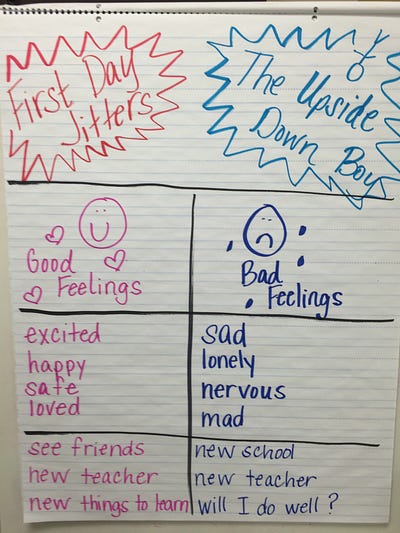 First Day
Jitters
The Upside
Down Boy
Good
Feelings
Bad
Feelings
excited
happy
safe
loved
sad
lonely
nervous
mad
see friends
new teacher
new things to learn
new school
new teacher
will I do well?